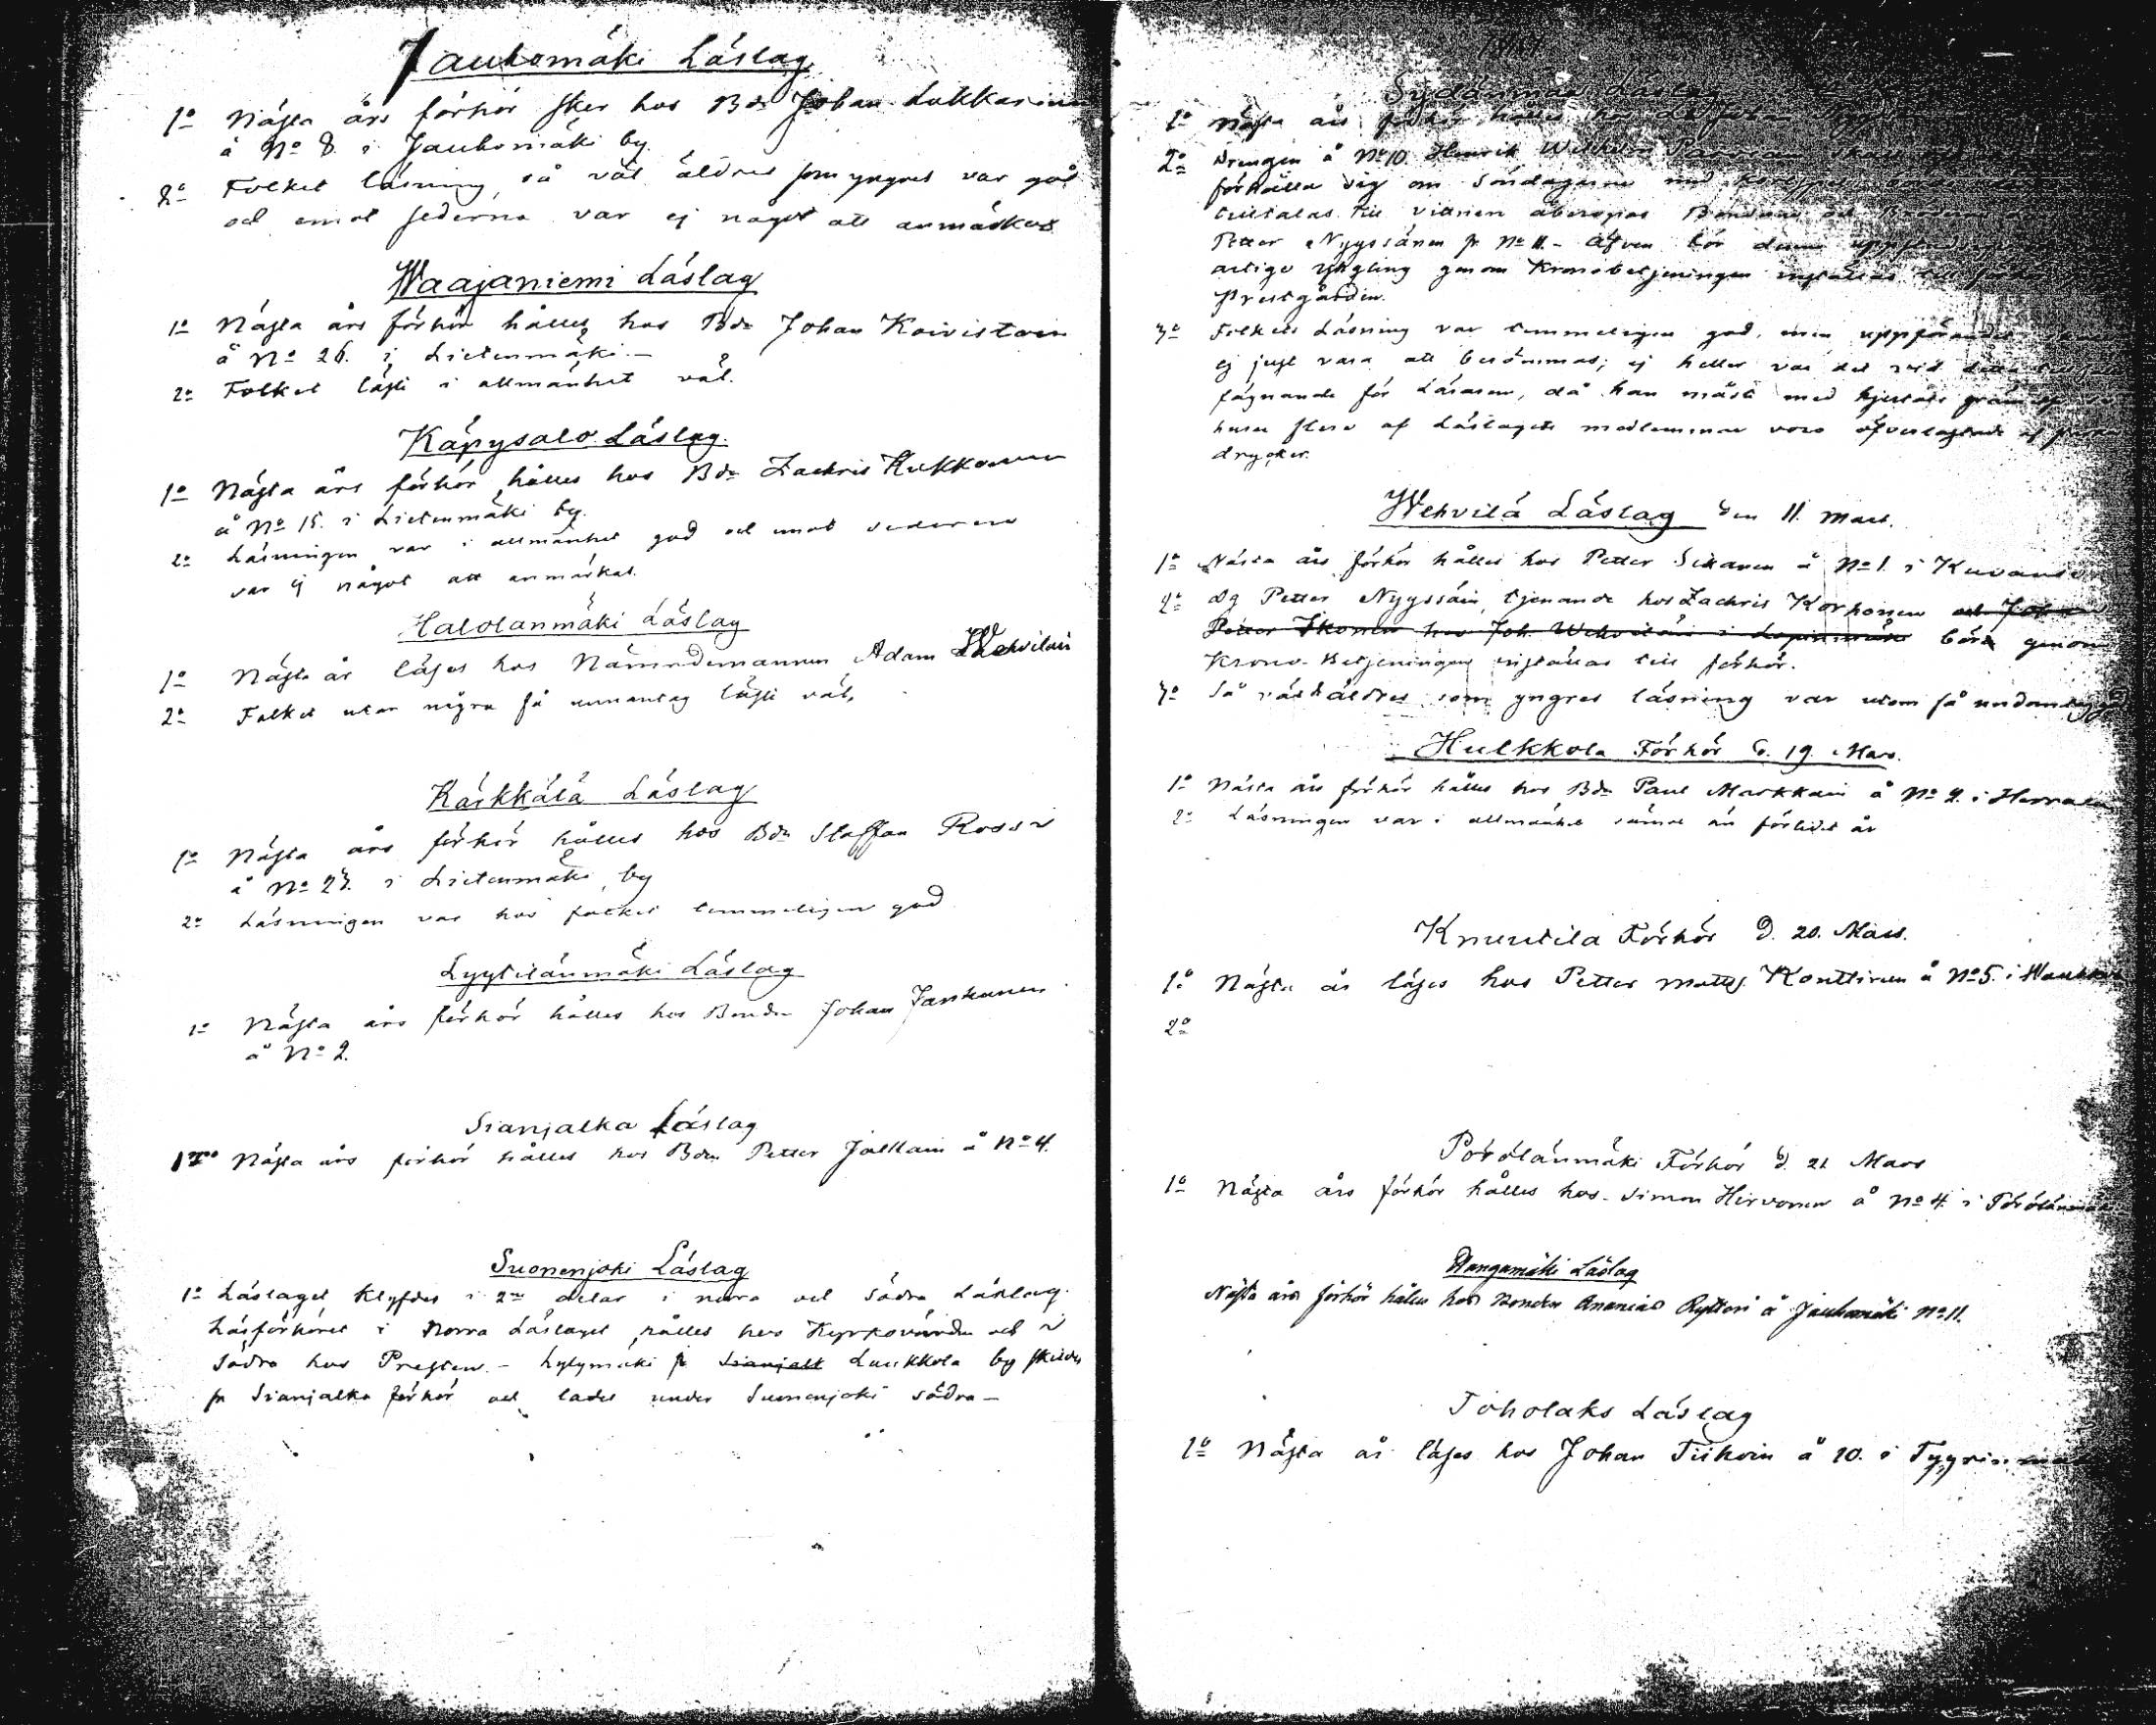 Jauhomäki Läslag
1o Nästa års förhör sker hos Bdn Johan Lukkarinen
å No 8. i Jauhomäki by.
2o Folket läsning, så väl äldres som yngres var god
och emot sederna var ej något att anmärkas
Waajaniemi Läslag
1o Nästa års förhör hålles hos Bdn Johan Koivistoin
å No 26. i Lietenmäki.—
2o Folket läste i allmänhet väl.
Käpysalo Läslag.
1o Nästa års förhör hålles hos Bdn Zachris Kukkonen
å No 15. i Lietenmäki by.
2o Läsningen var i allmänhet god och emot sederna
var ej något att anmärkas.
Halolanmäki Läslag
1o Nästa år läses hos Nämndemannen Adam Wehviläin
2o Folket utan några få unnantag läste väl.
Kärkkälä Läslag
1o Nästa års förhör hålles hos Bdn Staffan Rossi
å No 27. i Lietenmäki by
2o Läsningen var hos folket temmeligen god
Lyytilänmäki Läslag
1o Nästa års förhör hålles hos Bonden Johan Jauhanen
å No 2.
Sianjalka Läslag
1o Nästa års förhör hålles hos Bdn Petter Jalkain å No 4.
Suonenjoki Läslag
1o Läslaget klyfdes i 2ne delar i norra och södra Läslag.
Läsförhöret i Norra Läslaget hålles hos Kyrkovärden och i
Södra hos Presten.— Lylymäki fr Sianjalk Laukkola by skildes
fr Sianjalka förhör och lades under Suonenjoki södra—
Sydänmaa Läslag
1o Nästa års förhör hålles hos
2o Drengen å No 10. Henrik Wilhelm
förhålla sig om Söndagarne
tilltalas. Till vittnen åberopas Bönderne och
Petter Nyyssönen fr No 11.— Äfven bör denne
artige yngling genom Kronobetjeningen inställas till
Prestgården.
3o Folkets Läsning var temmeligen god, men uppförandet
ej just vara att berömmas; ej heller var det vid
fägnande för Läsaren, då han måste med hjertats
huru flere af Läslagets medlemmar voro öfverlastade af
drycker.
Wehvilä Läslag den 11. Mart.
1o Nästa års förhör hålles hos Petter Sikanen å No 1. i
2o Dg Petter Nyyssöin, tjenande hos Zachris Korhonen och
Petter Ikonen hos Joh. Wehviläin i Lapinmäki böra genom
Krono-Betjeningen inställas till förhör.
3o Så väl äldres som yngres läsning var utom få undantag
Hulkkola Förhör d. 19. Mars.
1o Nästa års förhör hålles hos Bdn Paul Markkain å No 2. i
2o Läsningen var i allmänhet sämre än förledet år
Knuutila Förhör d. 20. Mars.
1o Nästa år läses hos Petter Matts. Konttinen å No 5. i
2o
Pörölänmäki Förhör d. 21 Mars
1o Nästa års förhör hålles hos Simon Hirvonen å No 4. i Pörölänmäki
Kangamäki Läslag
Nästa års förhör hålles hos Bonden Ananias Ryttari å Jauhomäki No 11.
Toholaks Läslag
1o Nästa år läses hos Johan Tiihoin å 10. i